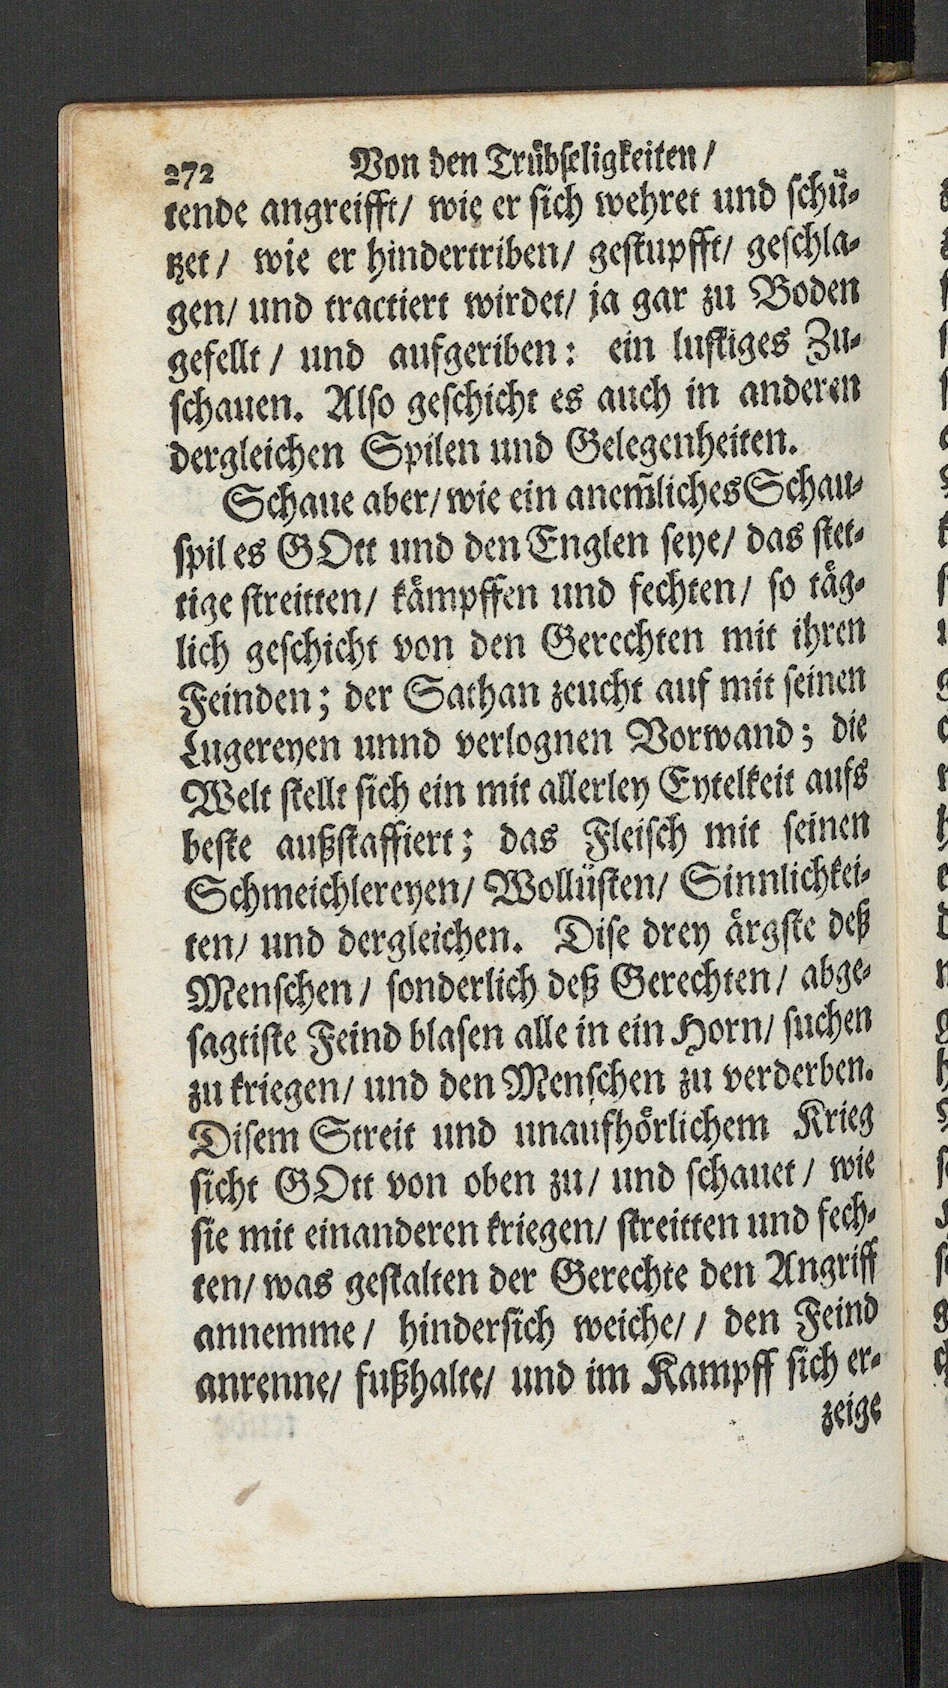 272 Von den Trübseligkeiten /
tende angreifft/ wie er sich wehret und schü-
tzet / wie er hindertriben/ gestupfft/ geschla-
gen/ und tractiert wirdet/ ja gar zu Boden
gefellt / und aufgeriben: ein lustiges Zu-
schauen. Also geschicht es auch in anderen
dergleichen Spilen und Gelegenheiten.
Schaue aber/ wie ein anem̃liches Schau-
spil es GOtt und den Englen seye/ das stet-
tige streitten/ kämpffen und fechten/ so täg-
lich geschicht von den Gerechten mit ihren
Feinden; der Sathan zeucht auf mit seinen
Lugereyen unnd verlognen Vorwand; die
Welt stellt sich ein mit allerley Eytelkeit aufs
beste außstaffiert; das Fleisch mit seinen
Schmeichlereyen/ Wollüsten/ Sinnlichkei-
ten/ und dergleichen. Dise drey ärgste deß
Menschen / sonderlich deß Gerechten/ abge-
sagtiste Feind blasen alle in ein Horn/ suchen
zu kriegen/ und den Menschen zu verderben.
Disem Streit und unaufhörlichem Krieg
sicht GOtt von oben zu/ und schauet / wie
sie mit einanderen kriegen/ streitten und fech-
ten/ was gestalten der Gerechte den Angriff
annemme / hindersich weiche/ / den Feind
anrenne/ fußhalte/ und im Kampff sich er-
zeige